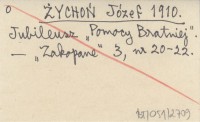 o ŻYCHOŃ Józef 1910.
Jubileusz „Pomocy Bratniej".
— „Zakopane" 3, nr 20-22.